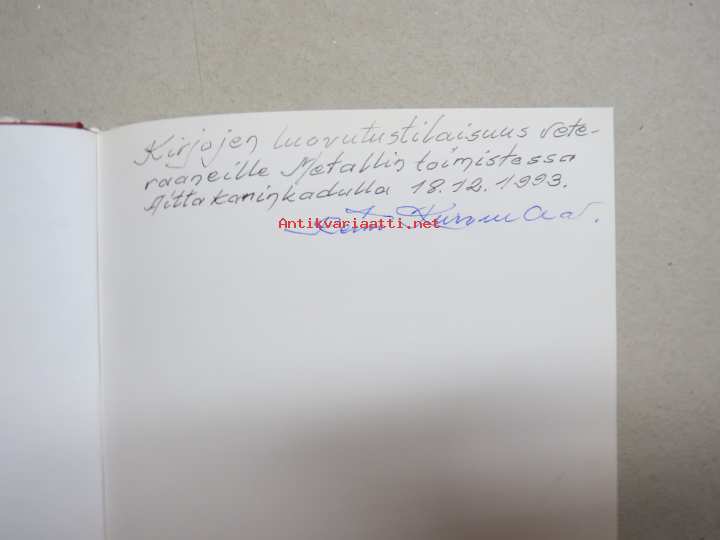 Kirjojen luovutustilaisuus vete-
raaneille Metallin toimistossa
Aittakaninkadulla 18.12.1993.
Antikvariaatti.net